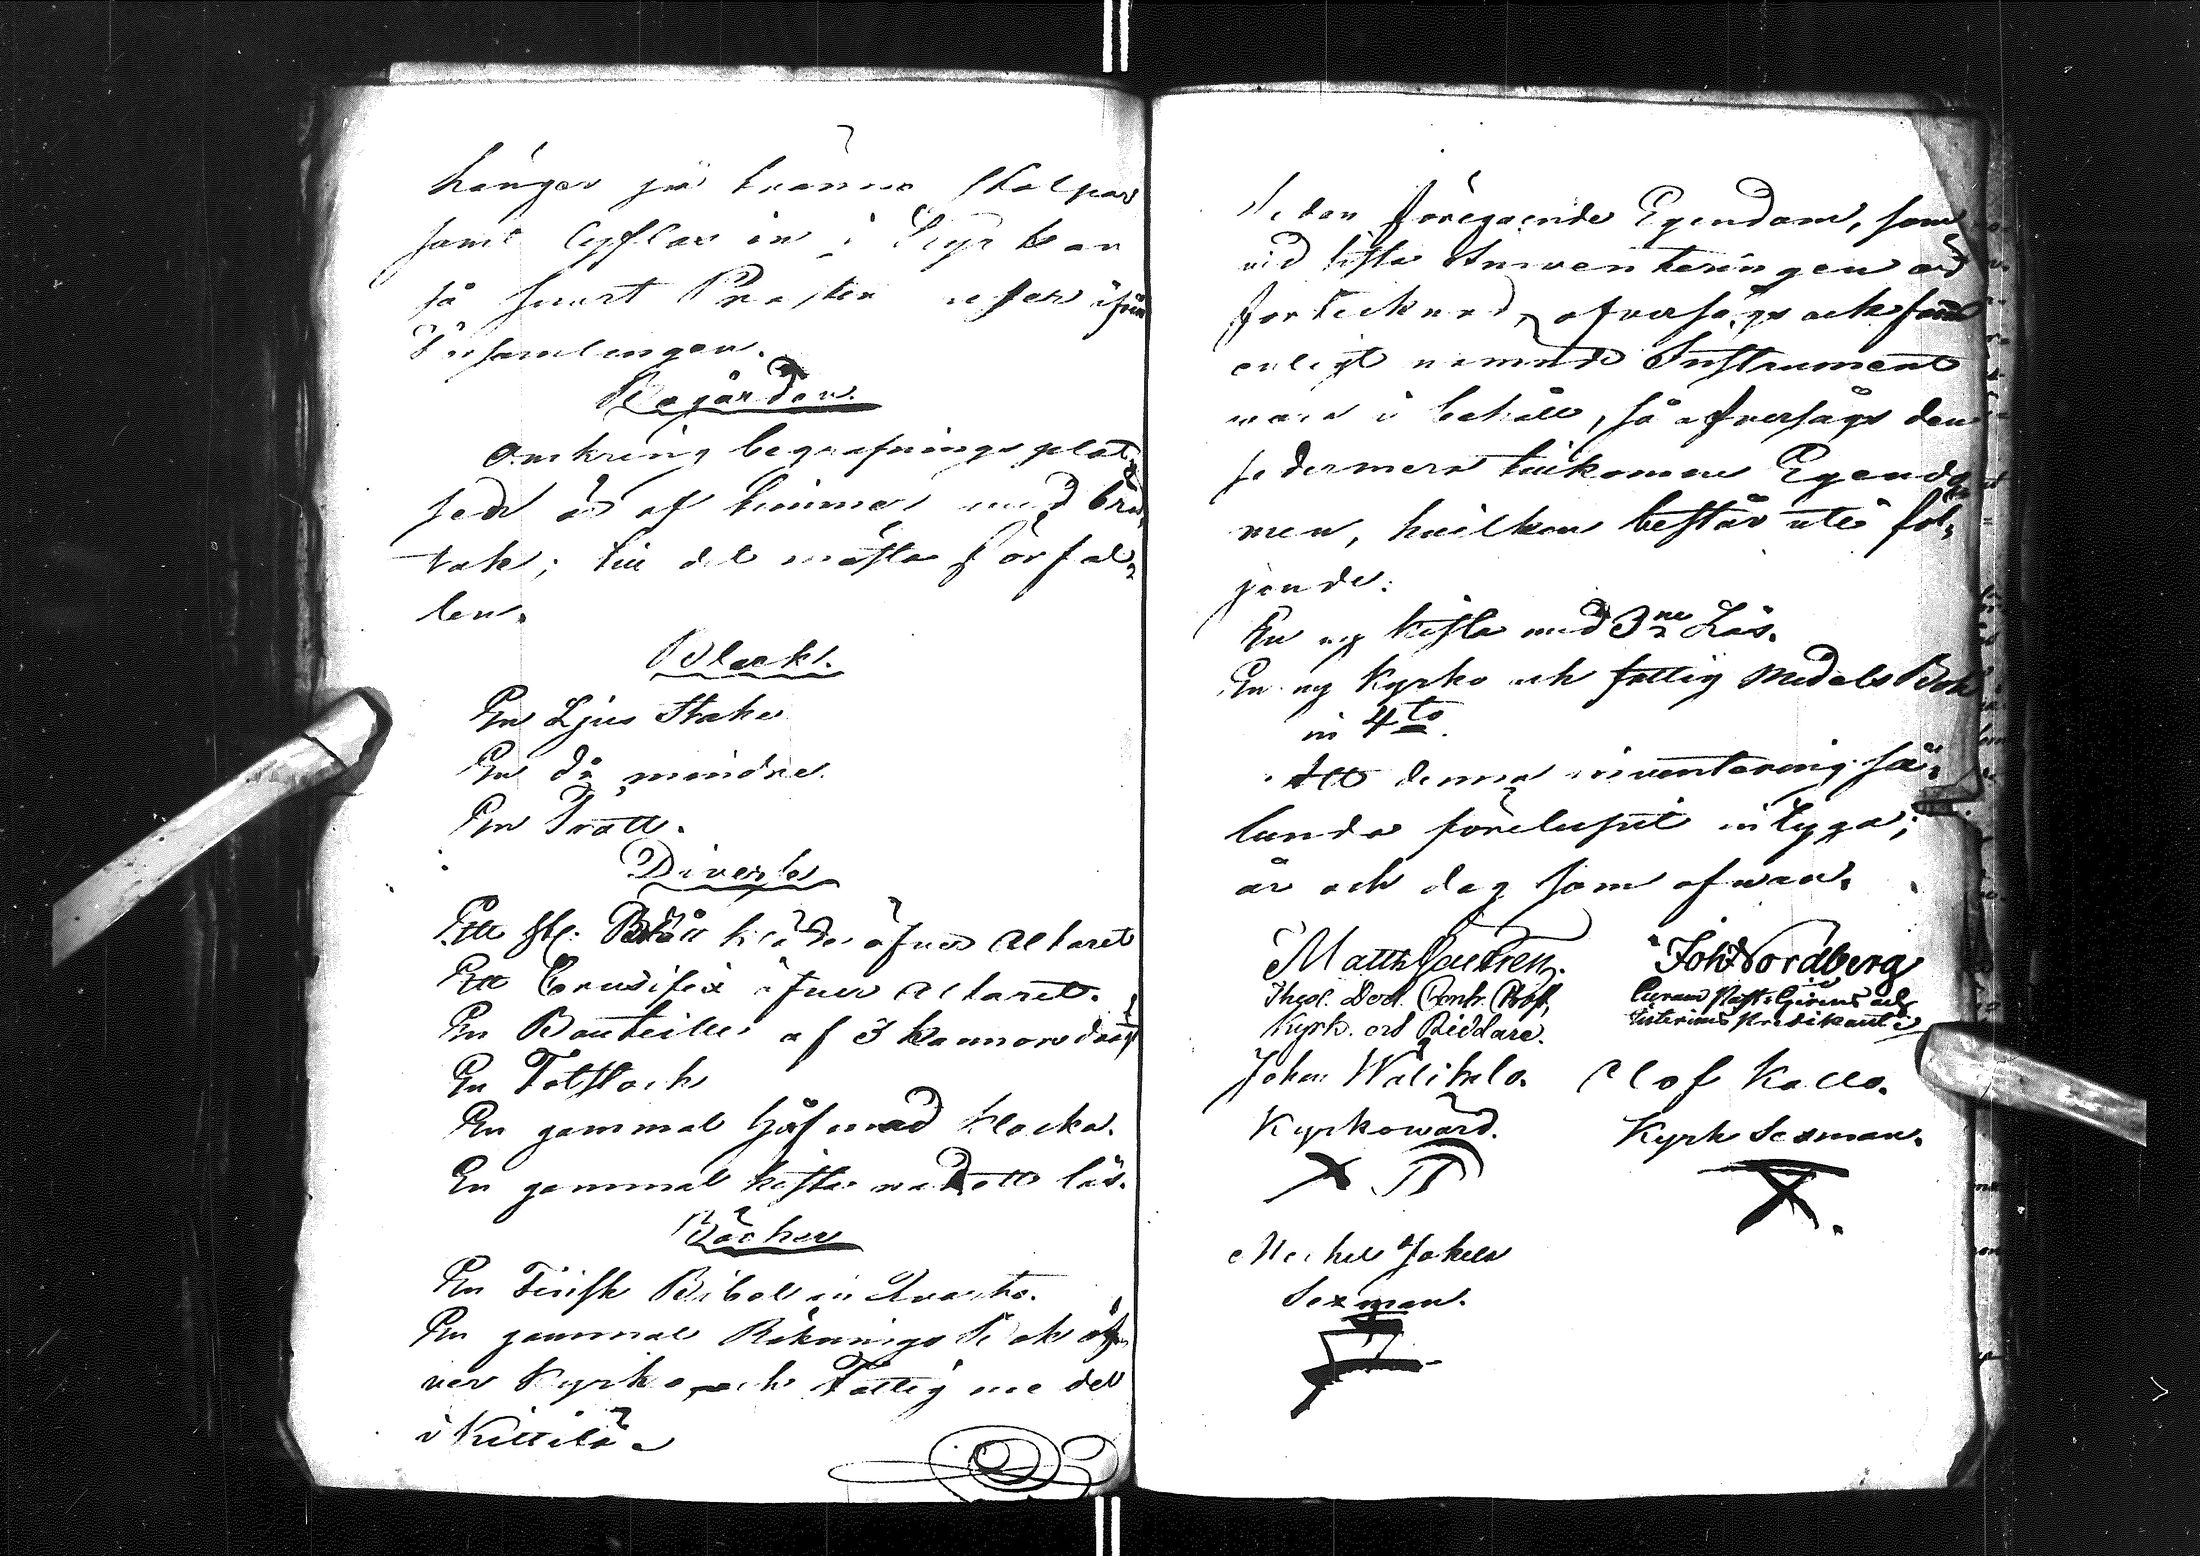 hänger på tvänne Stolpar
samt lyftas in i Kyrkan
så snart Prosten reser ifrån
Församlingen.
Bogården.
Omkring begrafnings plat¬
sen är af timmer med brä¬
tak; till det mästa förfal¬
len.
Bleck.
En Ljus Stake
En do mindre.
En Tratt.
Diverse
Ett st: Blått kläde öfver Altaret
Ett Crusifix öfver Altaret.
En Bouteille af 3 kannors drägt
En Fotstock
En gammal Håf med klocka.
En gammal kista med ett lås.
Böcker
En Finsk Bibel in Quarto.
En gammal Räknings Bok öf¬
ver Kyrko och Fattig medel
i Kittilä
Sedan föregående Egendom, som
vid sista Inventeringen är
förtecknad, afversågs och fans
enligt nämnde Instrument
vara i behåll, så afversågs den
sedermera tilkomne Egendo
men, hvilken består uti föl¬
jande:
En ny kista med 3ne Lås.
En ny Kyrko och fattig Medels Bok
in 4to.
Att denna inventering så¬
lunda förelupit intyga;
år och dag som ofwan.
Matth Joh Nordberg
Theol. Doct. Cont. Prost,
Kyrk. och Riddare.
Interims Predikant i
Johan Wälitalo. Olof Kallo.
Kyrkowärd. Kyrk Sexman.
Michel Jokela
Sexman.